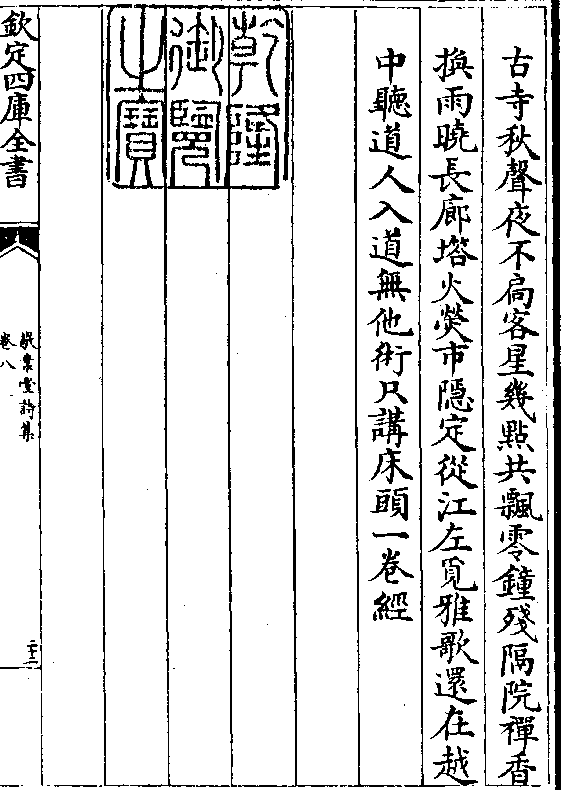 古寺秋聲夜不扃客星幾點共飄零鐘殘隔院禪香
換雨曉長廊塔火熒市隱定從江左覓雅歌還在越
中聽道人入道無他術只講床頭一卷經
乾隆
御覽
之寶
欽定四庫全書
敬業堂詩集
卷八